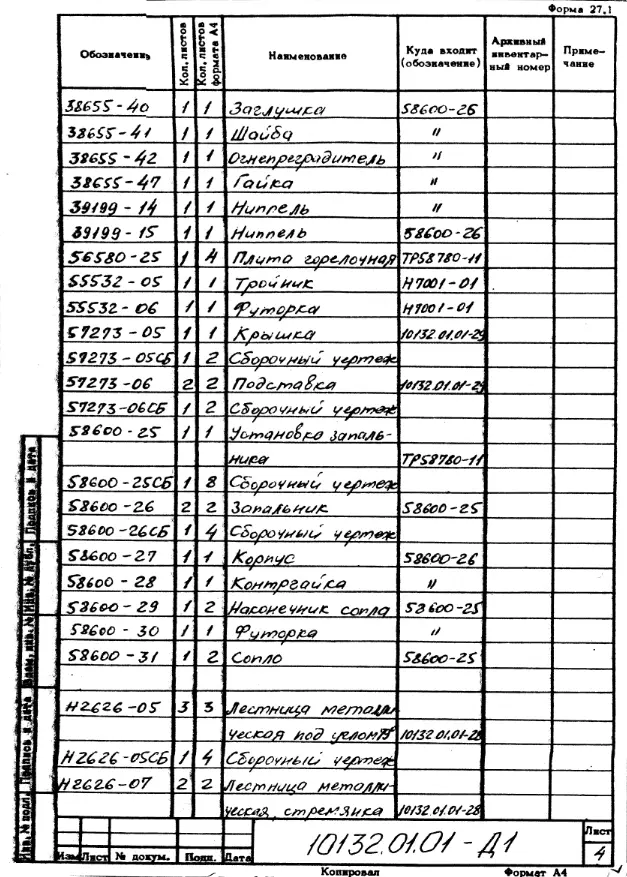 Форма 27.1
Обозначение Кол. листов Кол. листов формата А4 Наименование Куда входит (обозначение) Архивный инвентар-ный номер Приме-чание
38655-40 1 1 Заглушка 58600-26
38655-41 1 1 Шайба "
38655-42 1 1 Огнепреградитель "
38655-47 1 1 Гайка "
39199-14 1 1 Ниппель "
39199-15 1 1 Ниппель 58600-26
56580-25 1 4 Плита горелочная ТР58780-11
55532-05 1 1 Тройник Н7001-01
55532-06 1 1 Футорка Н7001-01
57273-05 1 1 Крышка 10132.01.01-29
57273-05СБ 1 2 Сборочный чертеж
57273-06 2 2 Подставка 10132.01.01-29
57273-06СБ 1 2 Сборочный чертеж
58600-25 1 1 Установка запаль-
ника ТР58780-11
58600-25СБ 1 8 Сборочный чертеж
58600-26 2 2 Запальник 58600-25
58600-26СБ 1 4 Сборочный чертеж
58600-27 1 1 Корпус 58600-26
58600-28 1 1 Контргайка "
58600-29 1 2 Наконечник сопла 58600-25
58600-30 1 1 Футорка "
58600-31 1 2 Сопло 58600-25
Н2626-05 3 3 Лестница металли
ческая под углом 10132.01.01-28
Н2626-05СБ 1 4 Сборочный чертеж
Н2626-07 2 2 Лестница металли-
ческая, стремянка 10132.01.01-28
Инв. № подл. Подпись и дата Взам. инв. № Инв. № дубл. Подпись и дата
Изм Лист № докум. Подп. Дата
10132.01.01-Д1
Лист
4
Копировал Формат А4